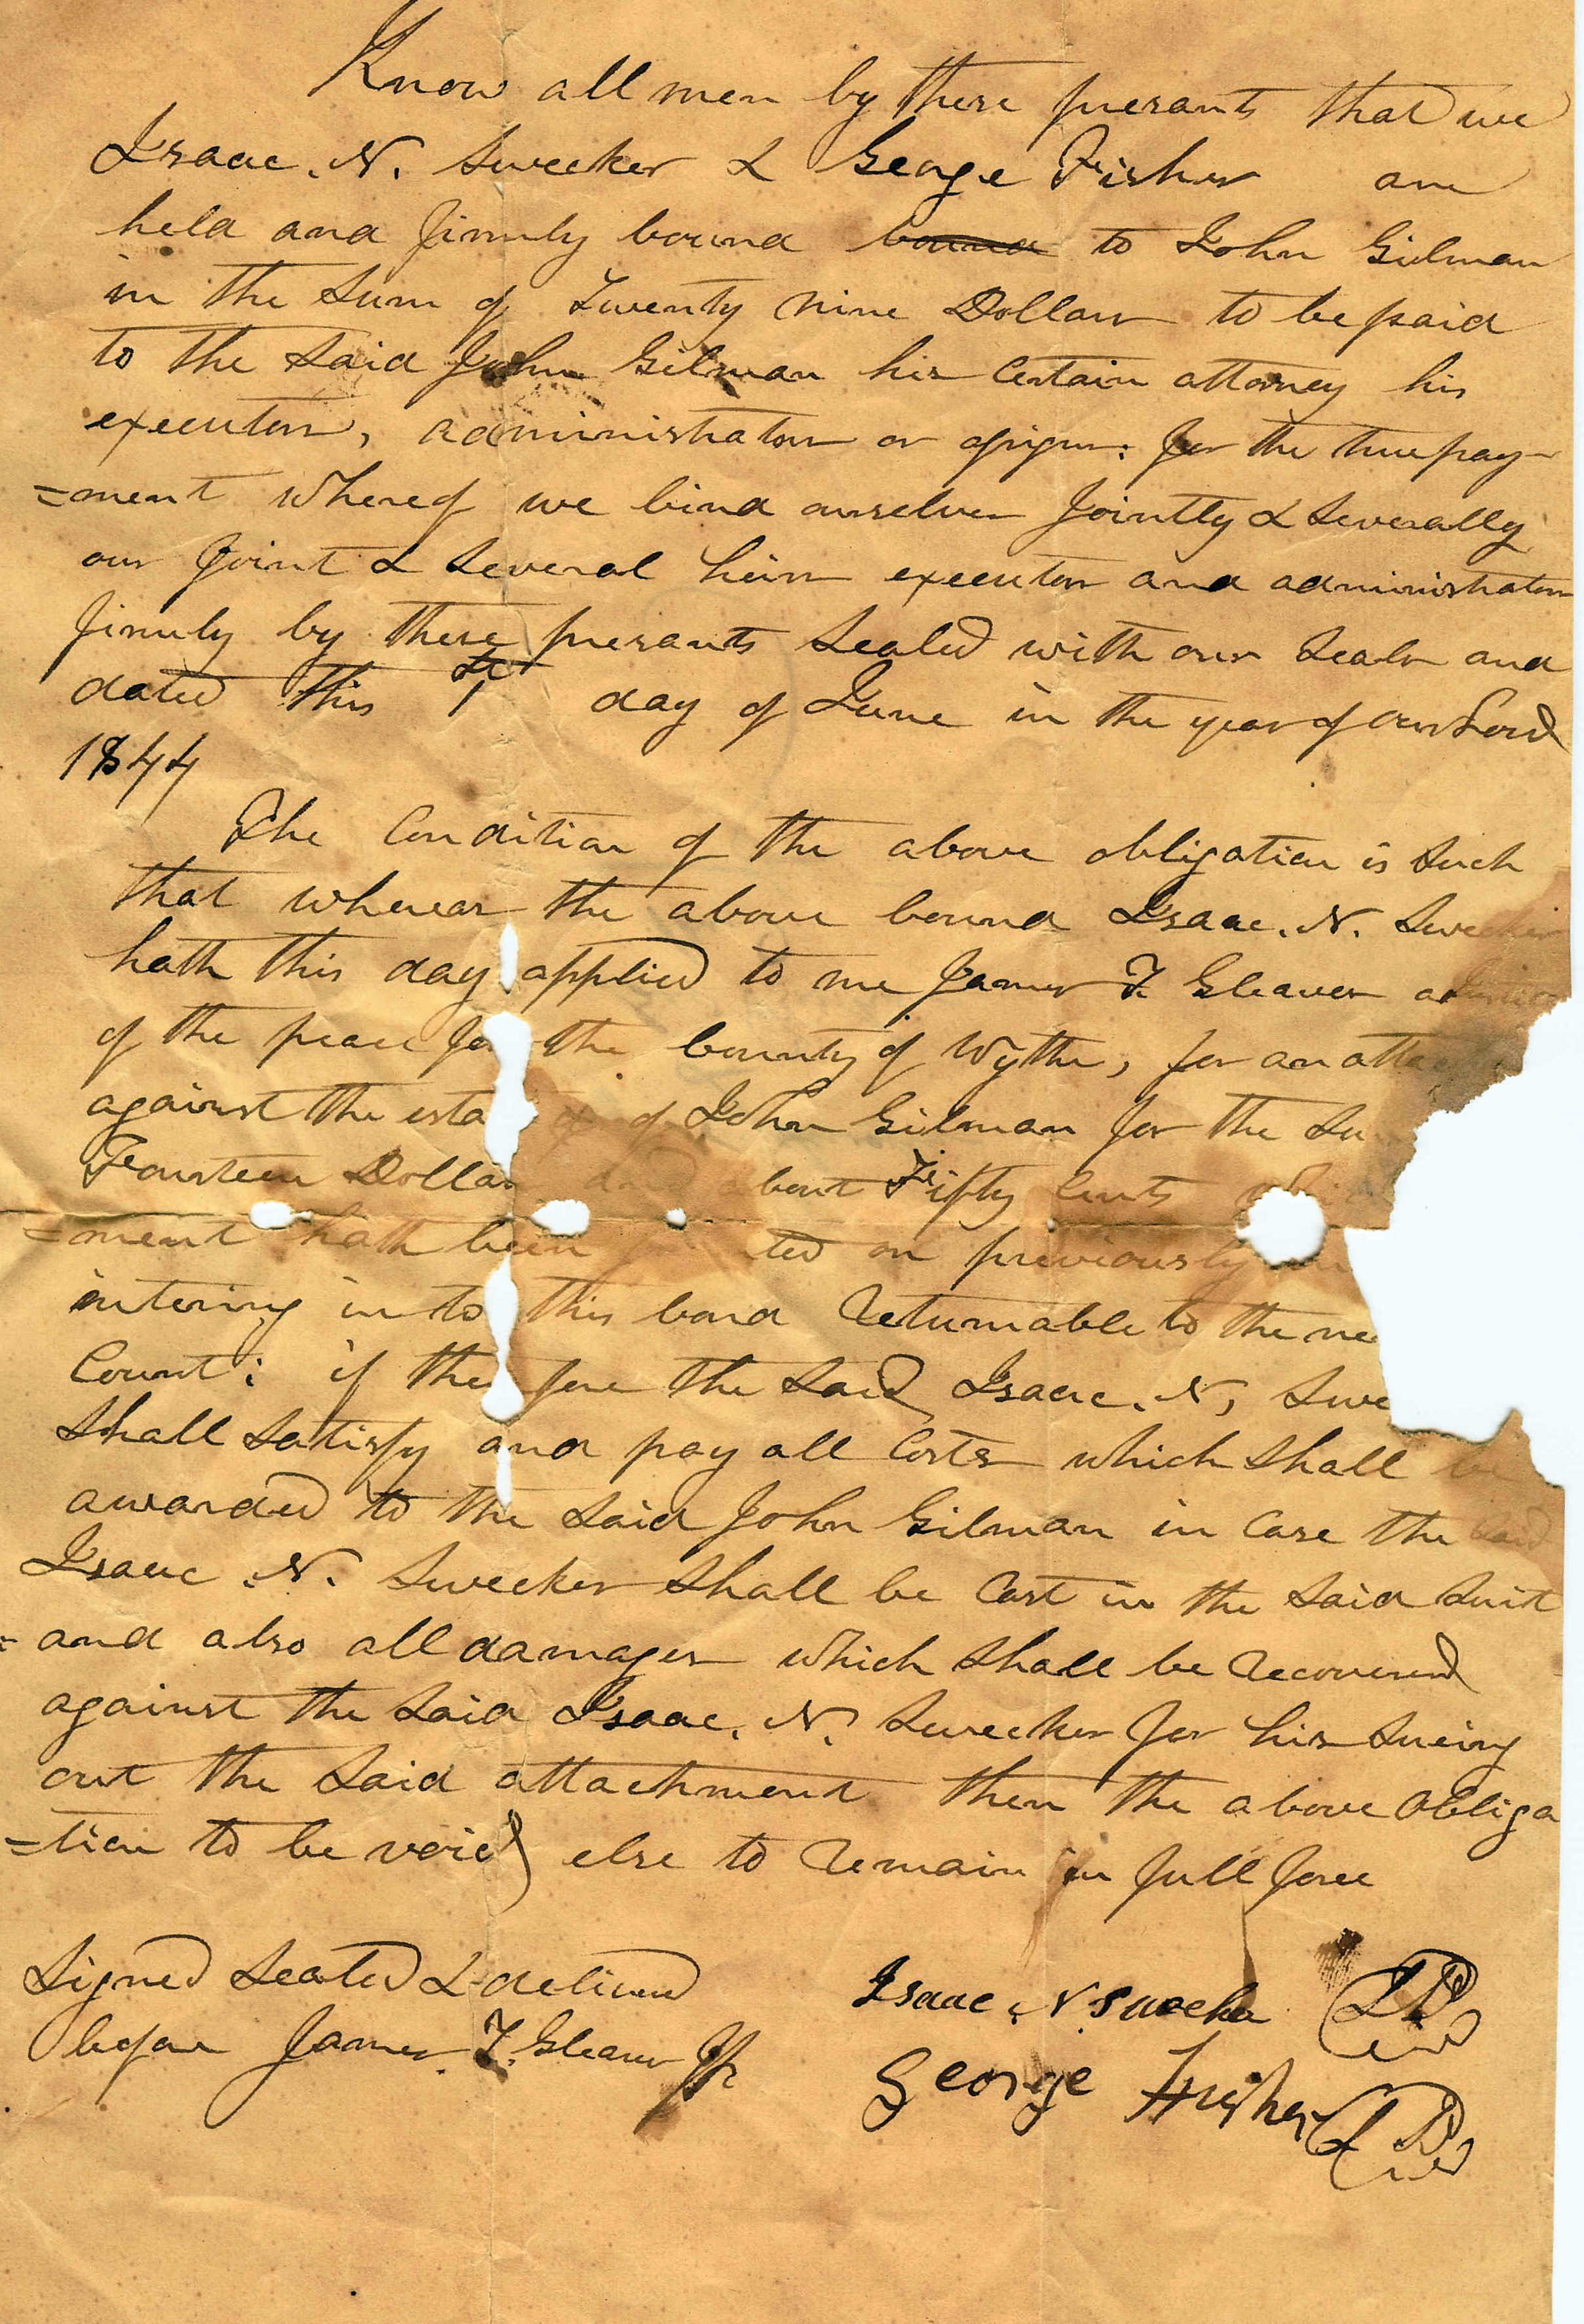 Know all men by these presants that we
Isaac. N. Swecker & George Fisher are
held and firmly bound bound to John Gilman
in the Sum of Twenty nine Dollars to be paid
to the Said John Gilman his Certain attorney his
executors, administrators or assigns: for the true pay-
=ment whereof we bind ourselves Jointly & Severally
our Joint & Several heirs executors and administrators
firmly by these presants Sealed with our Seals and
dated this 1st day of June in the year of our Lord
1844
The Condition of the above obligation is Such
that whereas the above bound Isaac. N. Swecker
hath this day applied to me James T. Gleaves a Justice
of the peace for the County of Wythe, for an atta
against the esta of John Gilman for the Su
Fourteen Dollars and about Fifty Cents
=ment hath been ted on previously
intering in to this bond Returnable to the ne
Court: if therefore the Said Isaac. N, Swe
Shall Satisfy and pay all Costs which Shall be
awarded to the Said John Gilman in Case the Said
Isaac N. Swecker Shall be Cast in the Said Suit
=and also all damages which Shall be Recovered
against the Said Isaac. N. Swecker for his Sueing
out the Said attachment then the above obliga
=tion to be void else to Remain in full force
Signed Sealed & delivered
before James. T. Gleaves Jp
Isaac. N. Swecker
George Fisher